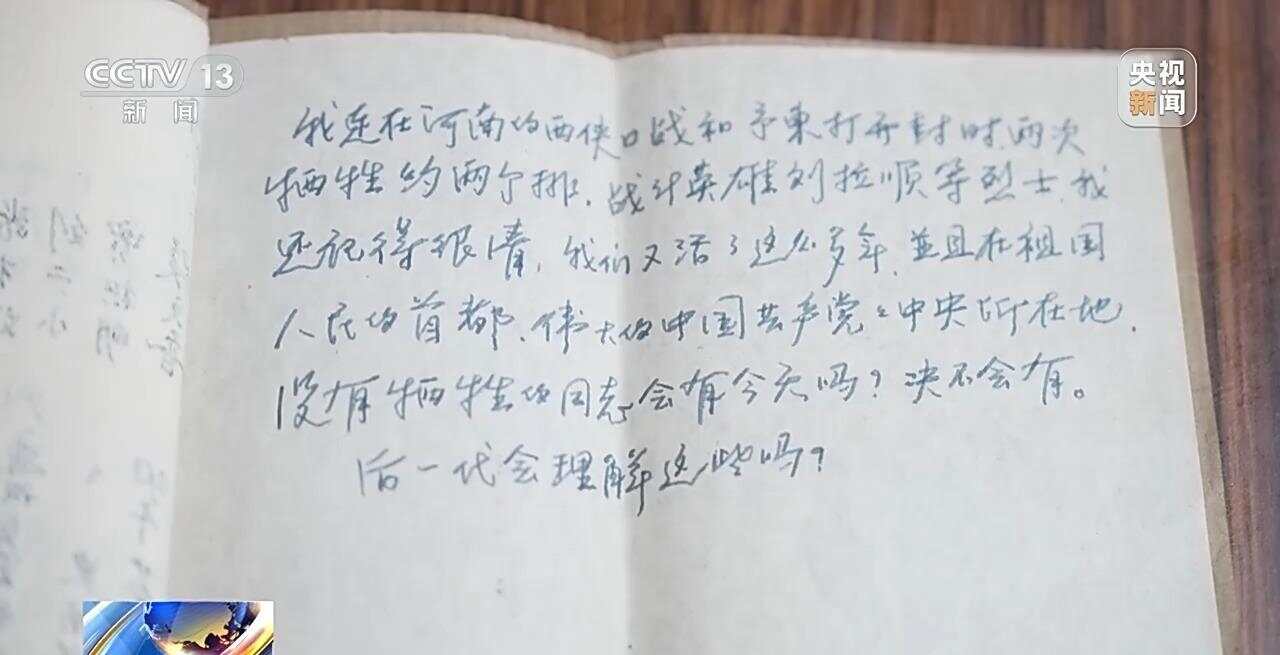 CCTV 13
新闻
央视
新闻
我连在河南的西侠口战和予東打开封时,两次
牺牲约两个排,战斗英雄刘拉顺等烈士,我
还记得很清,我们又活了这么多年,並且在祖国
人民的首都,伟大的中国共产党:中央所在地,
没有牺牲的同志会有今天吗?决不会有。
后一代会理解这些吗?